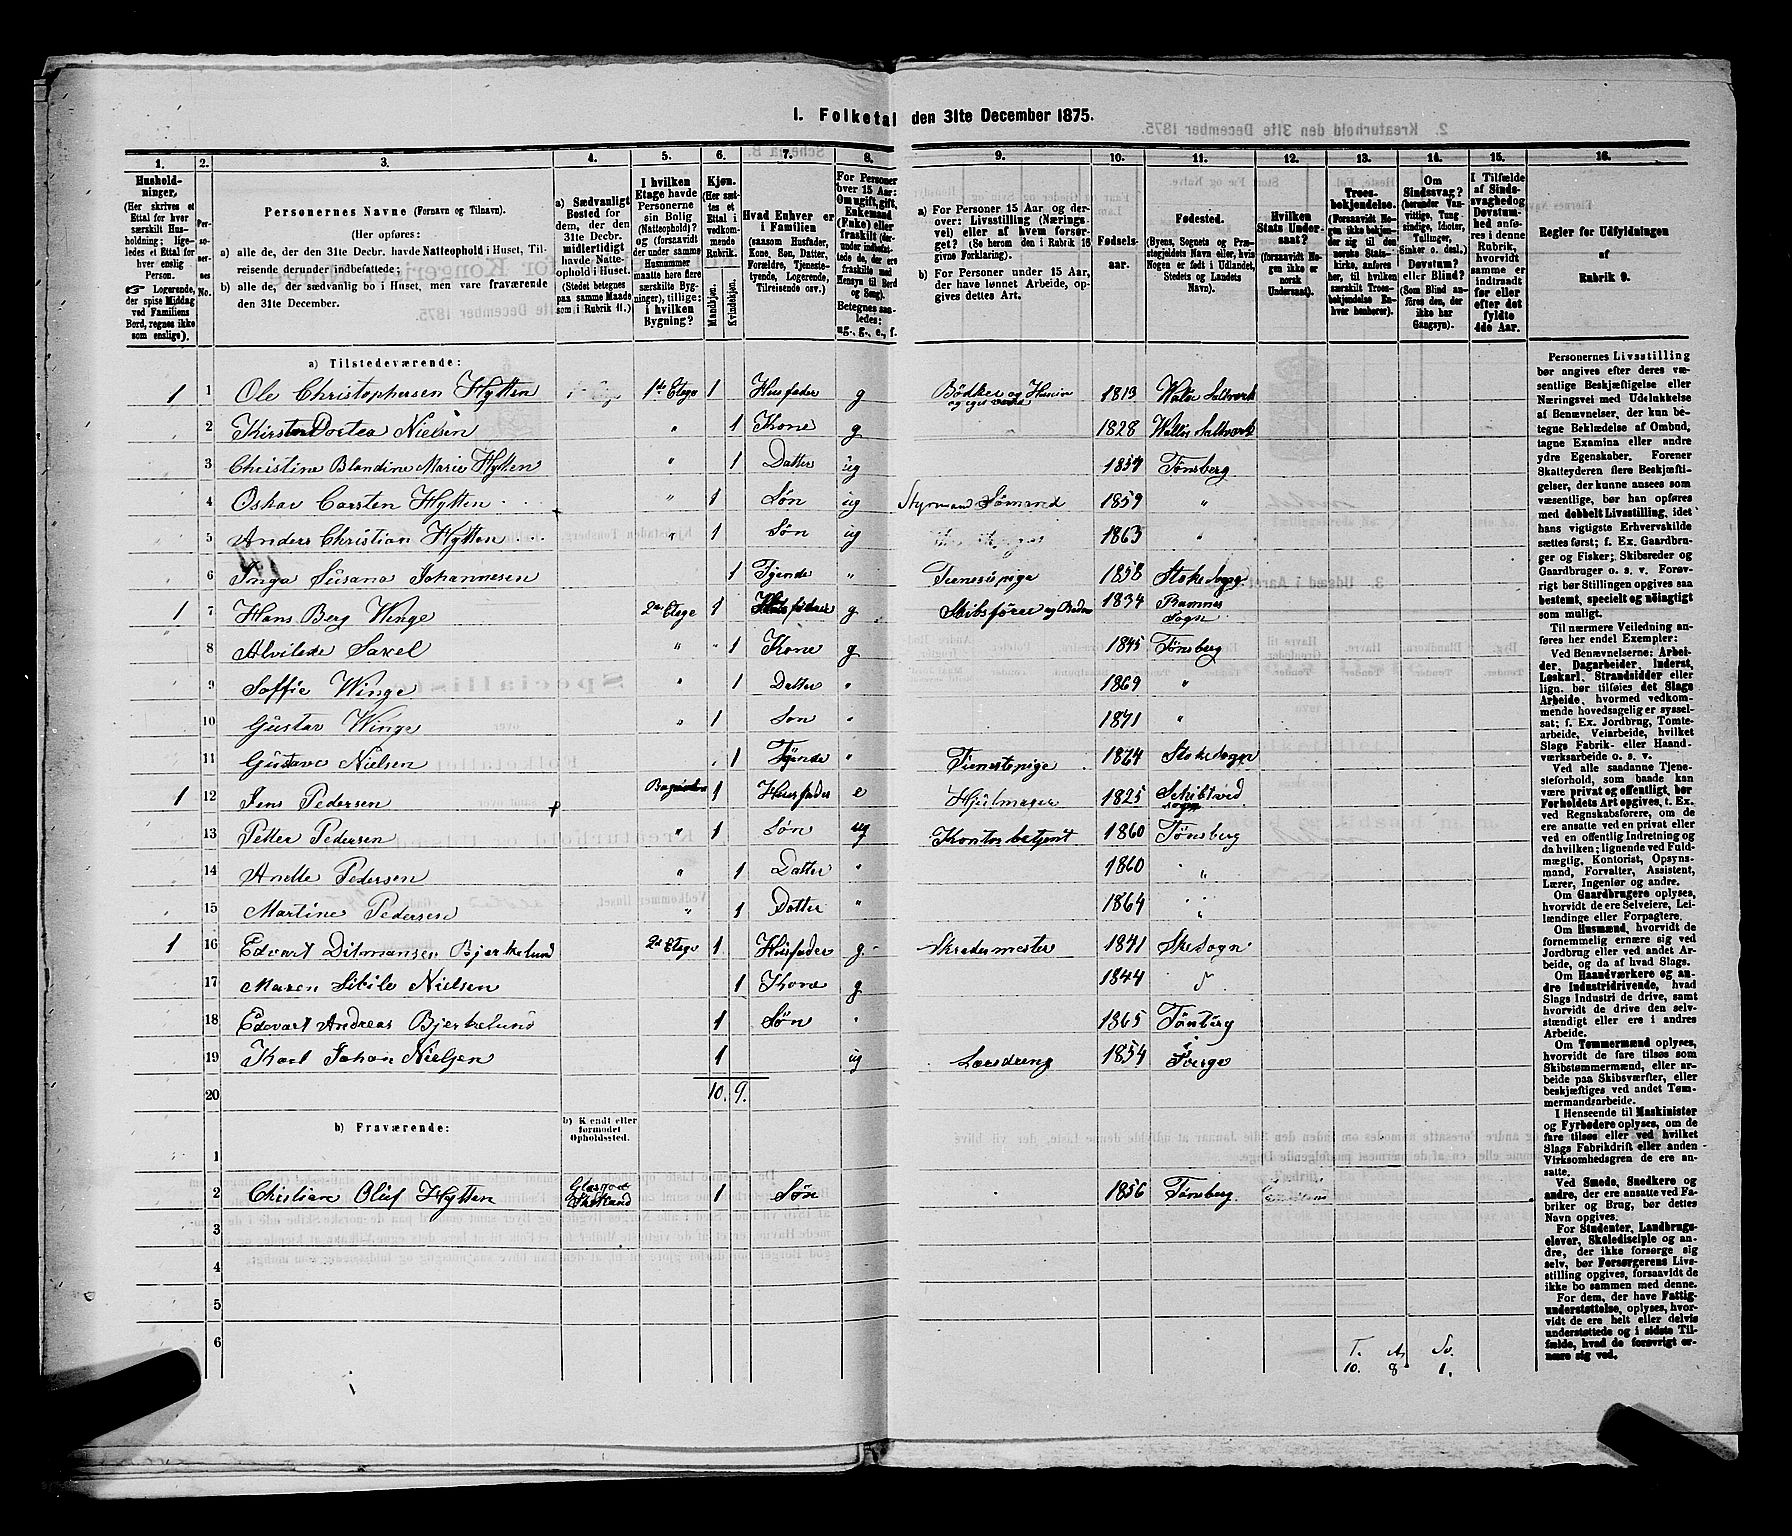 1. Folketal den 31te December 1875.
1. 2. 3. 4. 5. 6. 7. 8. 9. 10. 11. 12. 13. 14. 15. 16.
Hushold-
ninger.
(Her skrives et
Ettal for hver
særskilt Hus-
holdning; lige-
ledes et Ettal for
hver enslig
Person.
☞ Logerende,
der spise Middag
ved Familiens
Bord, regnes ikke
som enslige).
Per-
so-
ner-
nes
No.
Personernes Navne (Fornavn og Tilnavn).
(Her opføres:
a) alle de, der den 31te Decbr. havde Natteophold i Huset, Til-
reisende derunder indbefattede;
b) alle de, der sædvanlig bo i Huset, men vare fraværende
den 31te December.
a) Sædvanligt
Bosted for
dem, der den
31te Decbr.
midlertidigt
havde Natte-
ophold i Huset.
(Stedet betegnes
paa samme Maade
som i Rubrik 11.)
I hvilken
Etage havde
Personerne
sin Bolig
(Natteop-
hold)? og
(forsaavidt
der under
samme
Husnummer
maatte høre flere
særskilte Byg-
ninger), tillige:
i hvilken
Bygning?
Kjøn.
(Her sæt-
tes et
Ettal i
vedkom-
mende
Rubrik.
Mandkjøn.
Kvindekjøn.
Hvad Enhver er
i Familien
(saasom Husfader,
Kone, Søn, Datter,
Forældre, Tjeneste-
tyende, Logerende,
Tilreisende osv.)
For Personer
over 15 Aar:
Om ugift, gift,
Enkemand
(Enke) eller
fraskilt
Betegnes saa-
ledes:
ug., g., e., f.
a) For Personer 15 Aar og der-
over: Livsstilling (Nærings-
vei) eller af hvem forsør-
get? (Se herom den i Rubrik 16
givne Forklaring).
b) For Personer under 15 Aar,
der have lønnet Arbeide, op-
gives dettes Art.
Fødsels-
aar.
Fødested.
(Byens, Sognets og Præ-
stegjeldets Navn eller, hvis
Nogen er født i Udlandet,
Stedets og Landets
Navn).
Hvilken
Stats Under-
saat?
(forsaavidt No-
gen ikke er
norsk
Undersaat).
Troes-
bekjendelse.
(Forsaavidt No-
gen ikke bekjen-
der sig til den
norske Stats-
kirke, anføres
her, til hvilken
særskilt Troes-
bekjendelse En-
hver henhører).
Om
Sindssvag?
(herunder Van-
vittige, Tung-
sindige, Idioter,
Tullinger,
Sinker o. desl.)
Døvstum?
eller Blind?
(Som Blind an-
føres den, der
ikke har
Gangsyn).
I Tilfælde
af Sinds-
svaghed og
Døvstum-
hed anfø-
res i denne
Rubrik,
hvorvidt
samme er
indtraadt
før eller
efter det
fyldte
4de Aar.
Regler for Udfyldningen
af
Rubrik 9.
a) Tilstedeværende:
1 1 Ole Christophersen Hytten 1ste Etage 1 Husfader g Bødker og 1813 Saltverk
2 Kirsten Dortea Nielsen " 1 Kone g 1828 Valløs Saltverk
3 Christine Blandine Marie Hytten " 1 Datter ug 1857 Tønsberg
4 Oskar Carsten Hytten " 1 Søn ug Styrmand Sømand 1859 "
5 Anders Christian Hytten " 1 Søn ug 1863 "
6 Inga Susana Johannesen 1 Tjende " Tienestpige 1858 Stokke Sogn
1 7 Hans Berg Winge 2den Etage 1 Husfader g Skibsfører og Reder 1834 Ramnes Sogn
8 Alvilde Saxel " 1 Kone g 1845 Tønsberg
9 Soffie Winge " 1 Datter " 1869 "
10 Gustav Winge " 1 Son " 1871 "
11 Gustave Nielsen 1 Tjende " Tienestpige 1864 Stokke Sogn
1 12 Jens Pedersen 1 Husfader e Hjulmager 1825 Skibtved Sogn
13 Petter Pedersen " 1 Søn ug Kontorbetjent 1860 Tønsberg
14 Anette Pedersen " 1 Datter " 1860 "
15 Martine Pedersen " 1 Datter " 1864 "
1 16 Edvart Ditmansen Bjerkelund 2den Etage 1 Husfader g. Skredermester 1841 Sogn
17 Maren Sibile Nielsen 1 Kone g 1844
18 Edevart Andreas Bjerkelund 1 Søn " 1865 Tønsberg
19 Karl Johan Nielsen 1 ug Læredreng 1854 Sverge
20 10. 9.
b) Fraværende:
b) Kjendt eller
formodet
Opholdssted.
1
2 Christian Oluf Hytten Skotland 1 Søn 1856 Tønsberg.
3
4
5
6
T. A. Sv.
10. 8 1.
Personernes Livsstilling
bør angives efter deres væ-
sentlige Beskjæftigelse eller
Næringsvei med Udelukkelse
af Benævnelser, der kun be-
tegne Beklædelse af Ombud,
tagne Examina eller andre
ydre Egenskaber. Forener
Skatteyderen flere Beskjæfti-
gelser, der kunne ansees som
væsentlige, bør han opføres
med dobbelt Livsstilling, idet
hans vigtigste Erhvervskilde
sættes først; f. Ex. Gaardbru-
ger og Fisker; Skibsreder og
Gaardbruger o. s. v. Forøv-
rigt bør Stillingen opgives saa
bestemt, specielt og nøiagtigt
som muligt.
Til nærmere Veiledning an-
føres her endel Exempler:
Ved Benævnelserne: Arbei-
der, Dagarbeider, Inderst,
Løskarl, Strandsidder eller
lign. bør tilføies det Slags
Arbeide, hvormed vedkom-
mende hovedsagelig er syssel-
sat; f. Ex. Jordbrug, Tomte-
arbeide, Veiarbeide, hvilket
Slags Fabrik- eller Haand-
værksarbeide o. s. v.
Ved alle saadanne Tjene-
steforhold, som baade kan
være privat og offentligt, bør
Forholdets Art opgives, t. Ex.
ved Regnskabsførere, om de
ere ansatte ved en privat eller
ved en offentlig Indretning og
da hvilken; lignende ved Fuld-
mægtig, Kontorist, Opsyns-
mand, Forvalter, Assistent,
Lærer, Ingeniør og andre.
Om Gaardbrugere oplyses,
hvorvidt de ere Selveiere, Lei-
lændinge eller Forpagtere.
Om Husmænd, hvorvidt de
fornemmelig ernære sig ved
Jordbrug eller ved andet Ar-
beide, og da af hvad Slags.
Om Haandværkere og an-
dre Industridrivende, hvad
Slags Industri de drive, samt
hvorvidt de drive den selv-
stændigt eller ere i andres
Arbeide.
Om Tømmermænd oplyses,
hvorvidt de fare tilsøs som
Skibstømmermænd, eller ar-
beide paa Skibsværfter, eller
beskjæftiges ved andet Tøm-
mermandsarbeide.
I Henseende til Maskinister
og Fyrbødere oplyses, om de
fare tilsøs eller ved hvilket
Slags Fabrikdrift eller anden
Virksomhedsgren de ere an-
satte.
Ved Smede, Snedkere og
andre, der ere ansatte ved Fa-
briker og Brug, bør dettes
Navn opgives.
For Studenter, Landbrugs-
elever, Skoledisciple og an-
dre, der ikke forsørge sig
selv, bør Forsørgerens Livs-
stilling opgives, forsaavidt de
ikke bo sammen med denne.
For dem, der have Fattig-
understøttelse, oplyses, hvor-
vidt de ere helt eller delvis
understøttede og i sidste Til-
fælde, hvad de forøvrigt er-
nære sig ved.